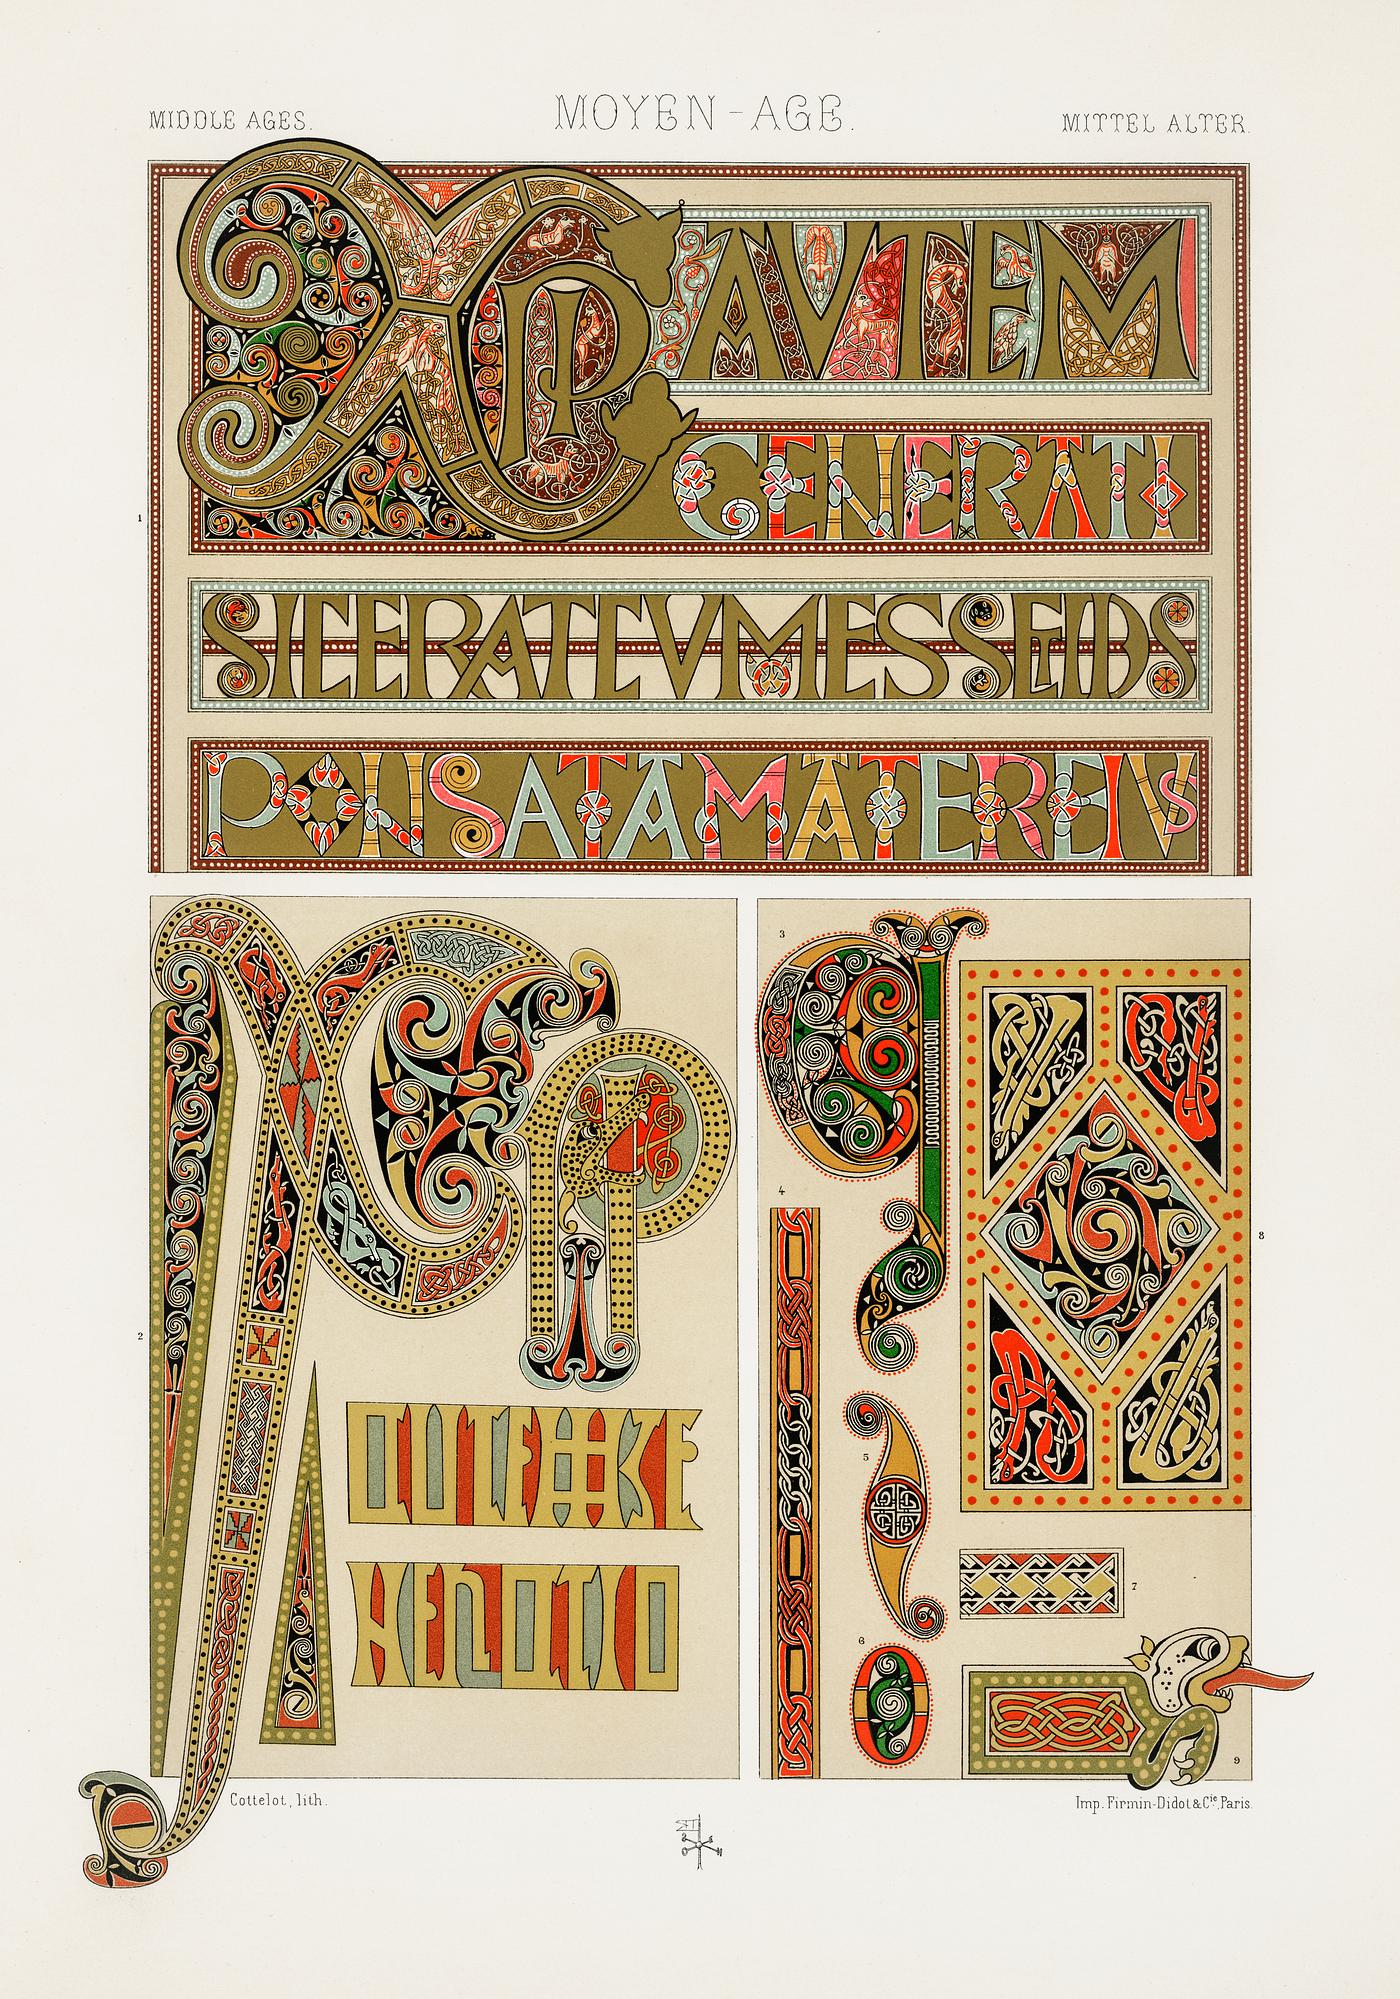 MIDDLE AGES.
MOYEN-AGE.
MITTEL ALTER.
XPI AVTEM
GENERATI
1
SICERATCVMESSETDIS
PONSATAMATEREIVS
XPI
2
3
4
5
6
7
8
9
Cottelot, lith.
Imp. Firmin-Didot & Cie. Paris.